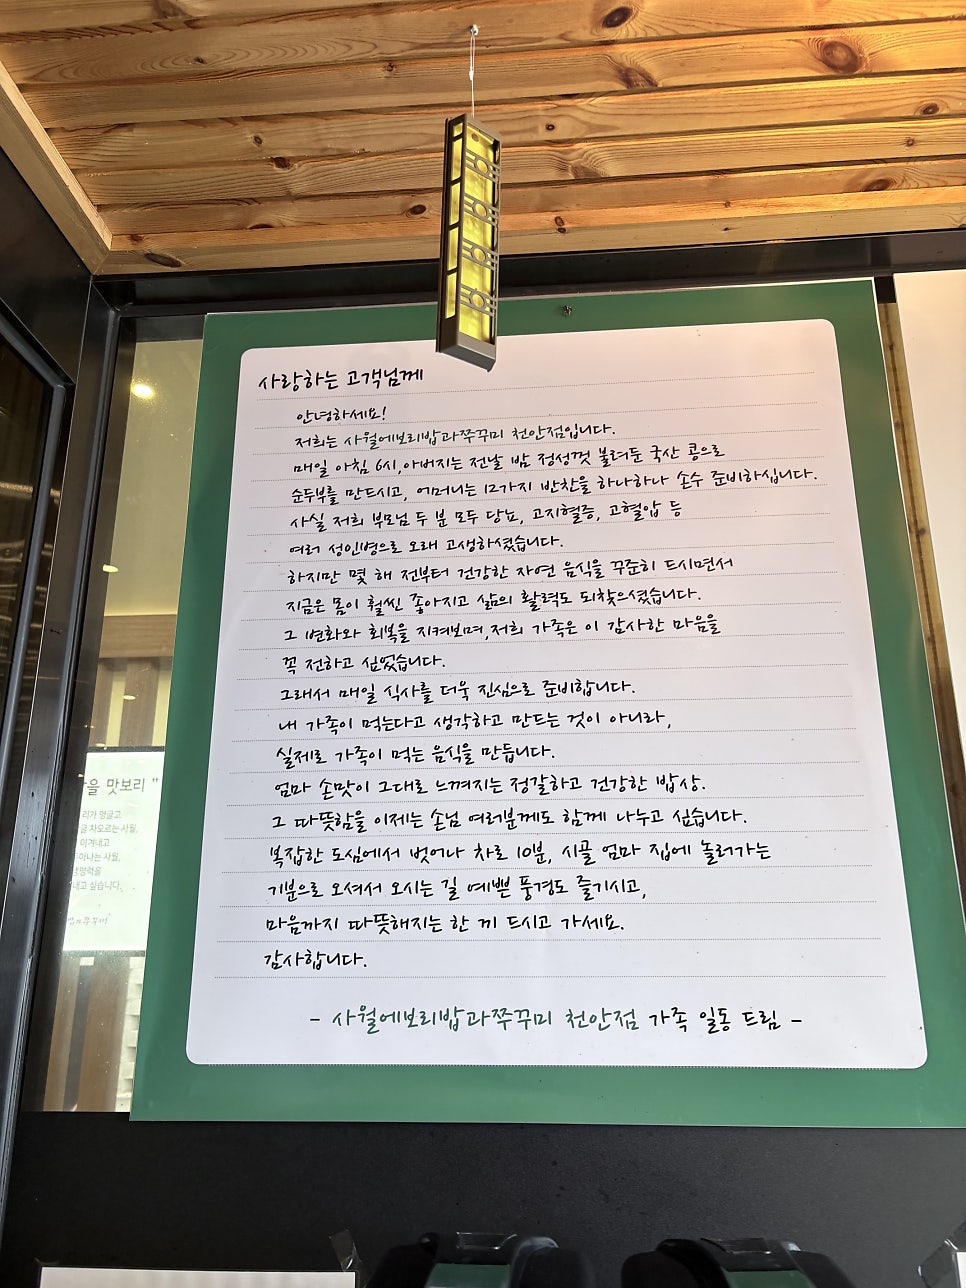 사랑하는 고객님께
안녕하세요!
저희는 사월에보리밥과쭈꾸미 천안점입니다.
매일 아침 6시, 아버지는 전날 밤 정성껏 불려둔 국산 콩으로
순두부를 만드시고, 어머니는 12가지 반찬을 하나하나 손수 준비하십니다.
사실 저희 부모님 두 분 모두 당뇨, 고지혈증, 고혈압 등
여러 성인병으로 오래 고생하셨습니다.
하지만 몇 해 전부터 건강한 자연 음식을 꾸준히 드시면서
지금은 몸이 훨씬 좋아지고 삶의 활력도 되찾으셨습니다.
그 변화와 회복을 지켜보며, 저희 가족은 이 감사한 마음을
꼭 전하고 싶었습니다.
그래서 매일 식사를 더욱 진심으로 준비합니다.
내 가족이 먹는다고 생각하고 만드는 것이 아니라,
실제로 가족이 먹는 음식을 만듭니다.
엄마 손맛이 그대로 느껴지는 정갈하고 건강한 밥상.
그 따뜻함을 이제는 손님 여러분께도 함께 나누고 싶습니다.
복잡한 도심에서 벗어나 차로 10분, 시골 엄마 집에 놀러가는
기분으로 오셔서 오시는 길 예쁜 풍경도 즐기시고,
마음까지 따뜻해지는 한 끼 드시고 가세요.
감사합니다.
- 사월에보리밥과쭈꾸미 천안점 가족 일동 드림 -
을 맛보리 "
리가 영글고
차오르는 사월,
이겨내고
나는 사월,
내고 싶습니다.